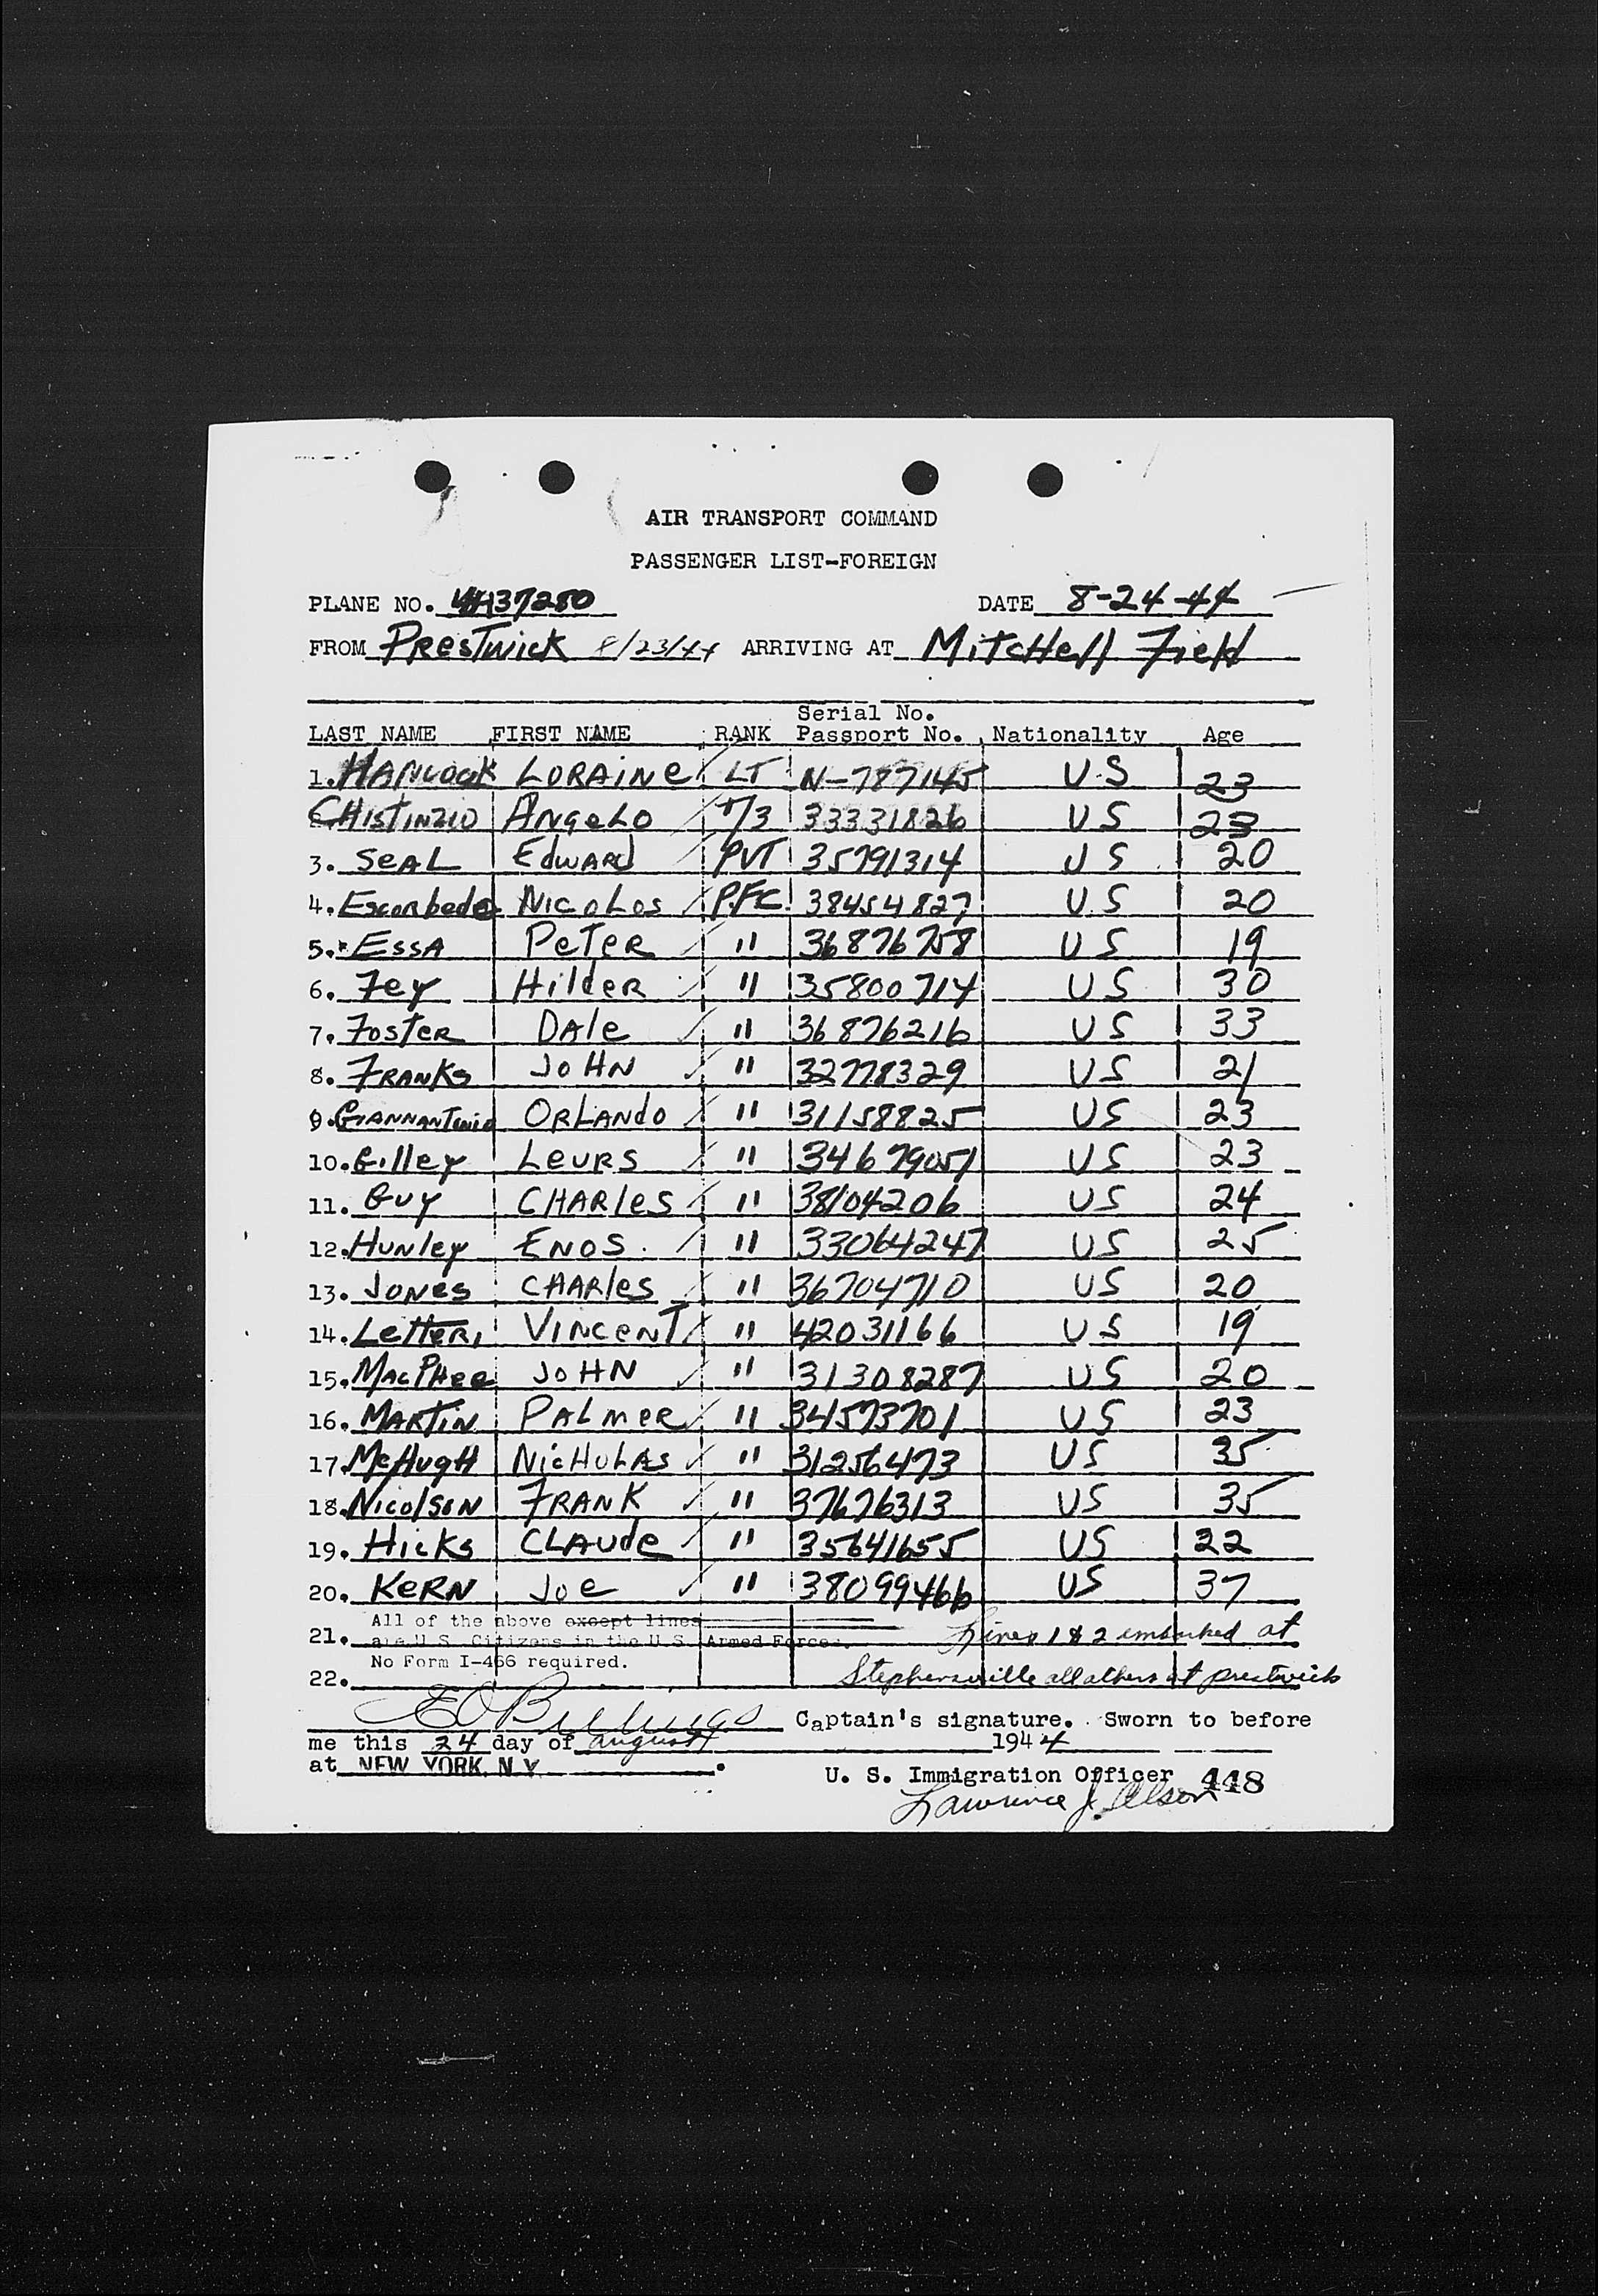 AIR TRANSPORT COMMAND
PASSENGER LIST-FOREIGN
PLANE NO. 4437280 DATE 8-24-44
FROM PRESTWICK 8/23/44 ARRIVING AT MITCHELL FIELD
LAST NAME FIRST NAME RANK Serial No. Passport No. Nationality Age
1. HANCOCK LORAINE LT N-787145 U.S 23
CHISTINZIO ANGELO T/3 33331826 US 23
3. SEAL EDWARD PVT 35791314 US 20
4. Escorbedo NICOLOS P.F.C. 38454827 U.S 20
5. ESSA PETER " 36876758 US 19
6. Fey HILDER " 35800714 US 30
7. FOSTER DALE " 36876216 US 33
8. FRANKS JOHN " 32778329 US 21
9. GIANNANTONIO ORLANDO " 31158825 US 23
10. Gilley LEURS " 34679051 US 23
11. GUY CHARLES " 38104206 US 24
12. HUNLEY ENOS. " 33064247 US 25
13. JONES CHARLES " 36704710 US 20
14. LETTERI VINCENT " 42031166 US 19
15. MACPHEE JOHN " 31308287 US 20
16. MARTIN PALMER " 34573701 US 23
17. McHUGH NICHOLAS " 31256473 US 35
18. NICOLSON FRANK " 37676313 US 35
19. HICKS CLAUDE " 35641655 US 22
20. KERN JOE " 38099466 US 37
All of the above except lines
21. are U.S. Citizens in the U.S. Armed Forces. Lines 1 & 2 embarked at
No Form I-466 required.
22. Stephensville all others at prestwick
Captain's signature. Sworn to before
me this 24 day of august 1944
at NEW YORK, N.Y.
U. S. Immigration Officer 448
Lawrence J. Olson